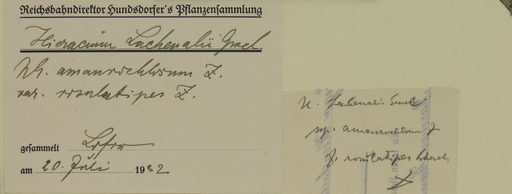 Reichsbahndirektor Hundsdorfer's Pflanzensammlung
Hieracium Lachenalii Gmel.
ssp. amaurochlorum Z.
var. rosulatipes Z.
gesammelt Lofer
am 20. Juli 1932
H. Lachenalii Gmel
ssp. amaurochlorum Z
rosulatipes